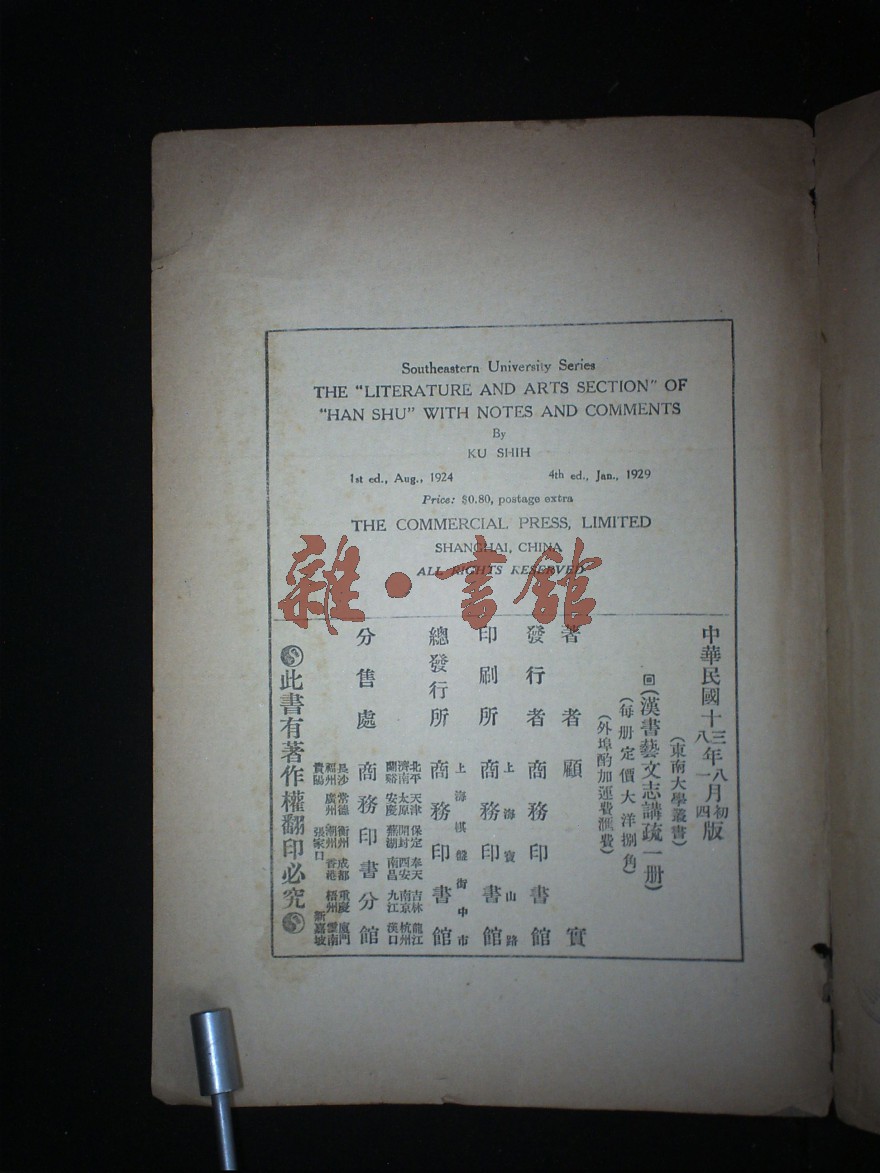 Southeastern University Series
THE "LITERATURE AND ARTS SECTION" OF
"HAN SHU" WITH NOTES AND COMMENTS
By
KU SHIH
1st ed., Aug., 1924
4th ed., Jan., 1929
Price: $0.80, postage extra
THE COMMERCIAL PRESS, LIMITED
SHANGHAI, CHINA
ALL RIGHTS RESERVED
雜·書館
中華民國十三年八月初版
八一四
(東南大學叢書)
回(漢書藝文志講疏一册)
(每册定價大洋捌角)
(外埠酌加運費匯費)
著者 顧實
發行者 商務印書館
上海寶山路
印刷所 商務印書館
上海棋盤街中市
總發行所 商務印書館
北平 天津 保定 奉天 吉林 龍江
濟南 太原 開封 西安 南京 杭州
蘭谿 安慶 蕪湖 南昌 九江 漢口
分售處 商務印書分館
長沙 常德 衡州 成都 重慶 廈門
福州 廣州 潮州 香港 梧州 雲南
貴陽 張家口 新嘉坡
此書有著作權翻印必究